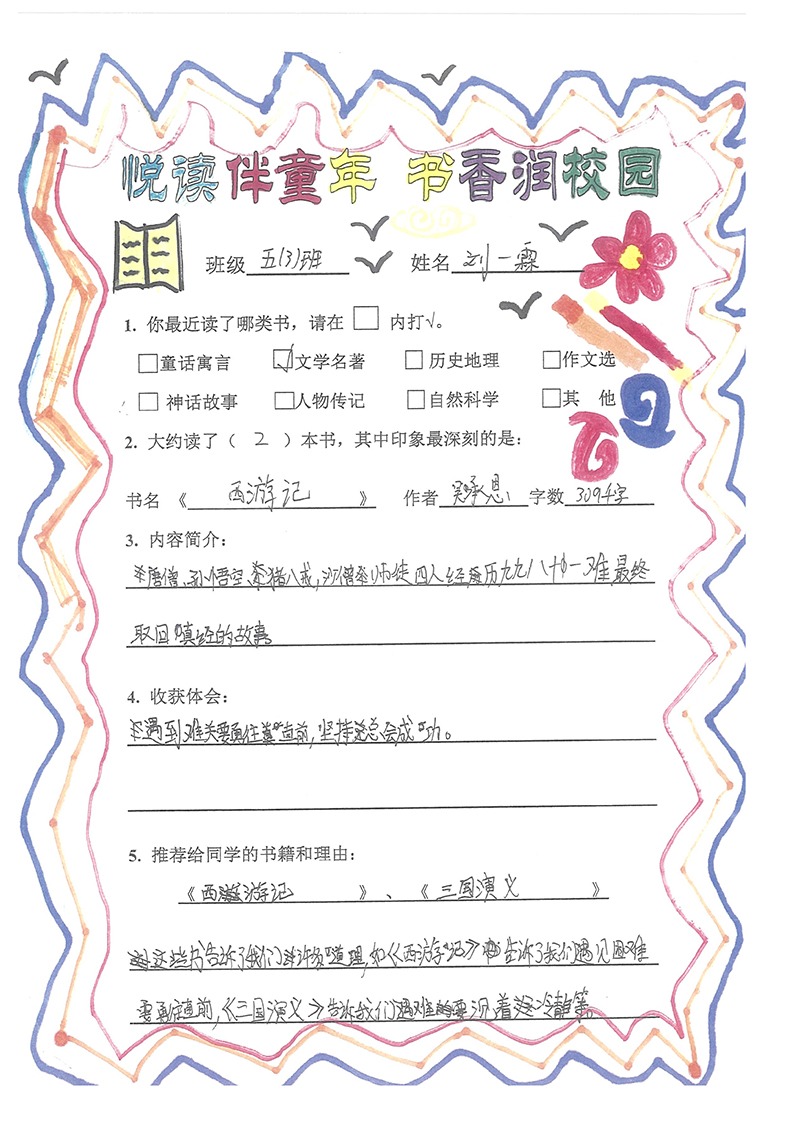 悦读伴童年 书香润校园
班级 五(3)班 姓名 刘一霖
1. 你最近读了哪类书，请在 □ 内打√。
□童话寓言 ☑文学名著 □历史地理 □作文选
□神话故事 □人物传记 □自然科学 □其 他
2. 大约读了（ 2 ）本书，其中印象最深刻的是：
书名《 西游记 》 作者 吴承恩 字数 3094字
3. 内容简介：
唐僧、孙悟空、猪八戒，沙僧师徒四人经历九九八十一难，最终
取回真经的故事
4. 收获体会：
遇到难关要勇往直前，坚持总会成功。
5. 推荐给同学的书籍和理由：
《西游记 》、《 三国演义 》
这些书告诉了我们许多道理，如《西游记》告诉了我们遇见困难
要勇往直前，《三国演义》告诉我们遇难要沉着冷静等。